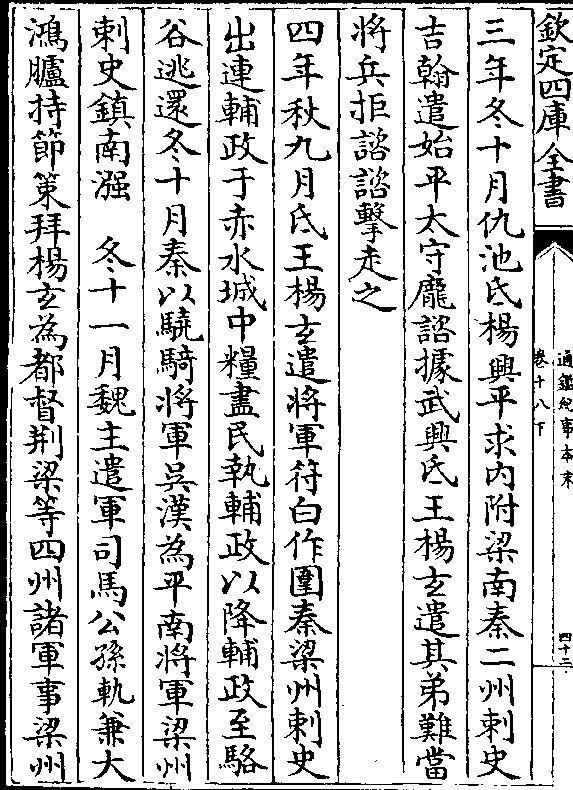 欽定四庫全書
通鑑紀事本末
卷十八下
四十三
三年冬十月仇池氐楊興平求内附梁南秦二州刺史
吉翰遣始平太守龐諮據武興氐王楊玄遣其弟難當
將兵拒諮諮擊走之
四年秋九月氐王楊玄遣將軍苻白作圍秦梁州刺史
出連輔政于赤水城中糧盡民執輔政以降輔政至駱
谷逃還冬十月秦以驍騎將軍吳漢為平南將軍梁州
刺史鎮南漒　冬十一月魏主遣軍司馬公孫軌兼大
鴻臚持節策拜楊玄為都督荆梁等四州諸軍事梁州